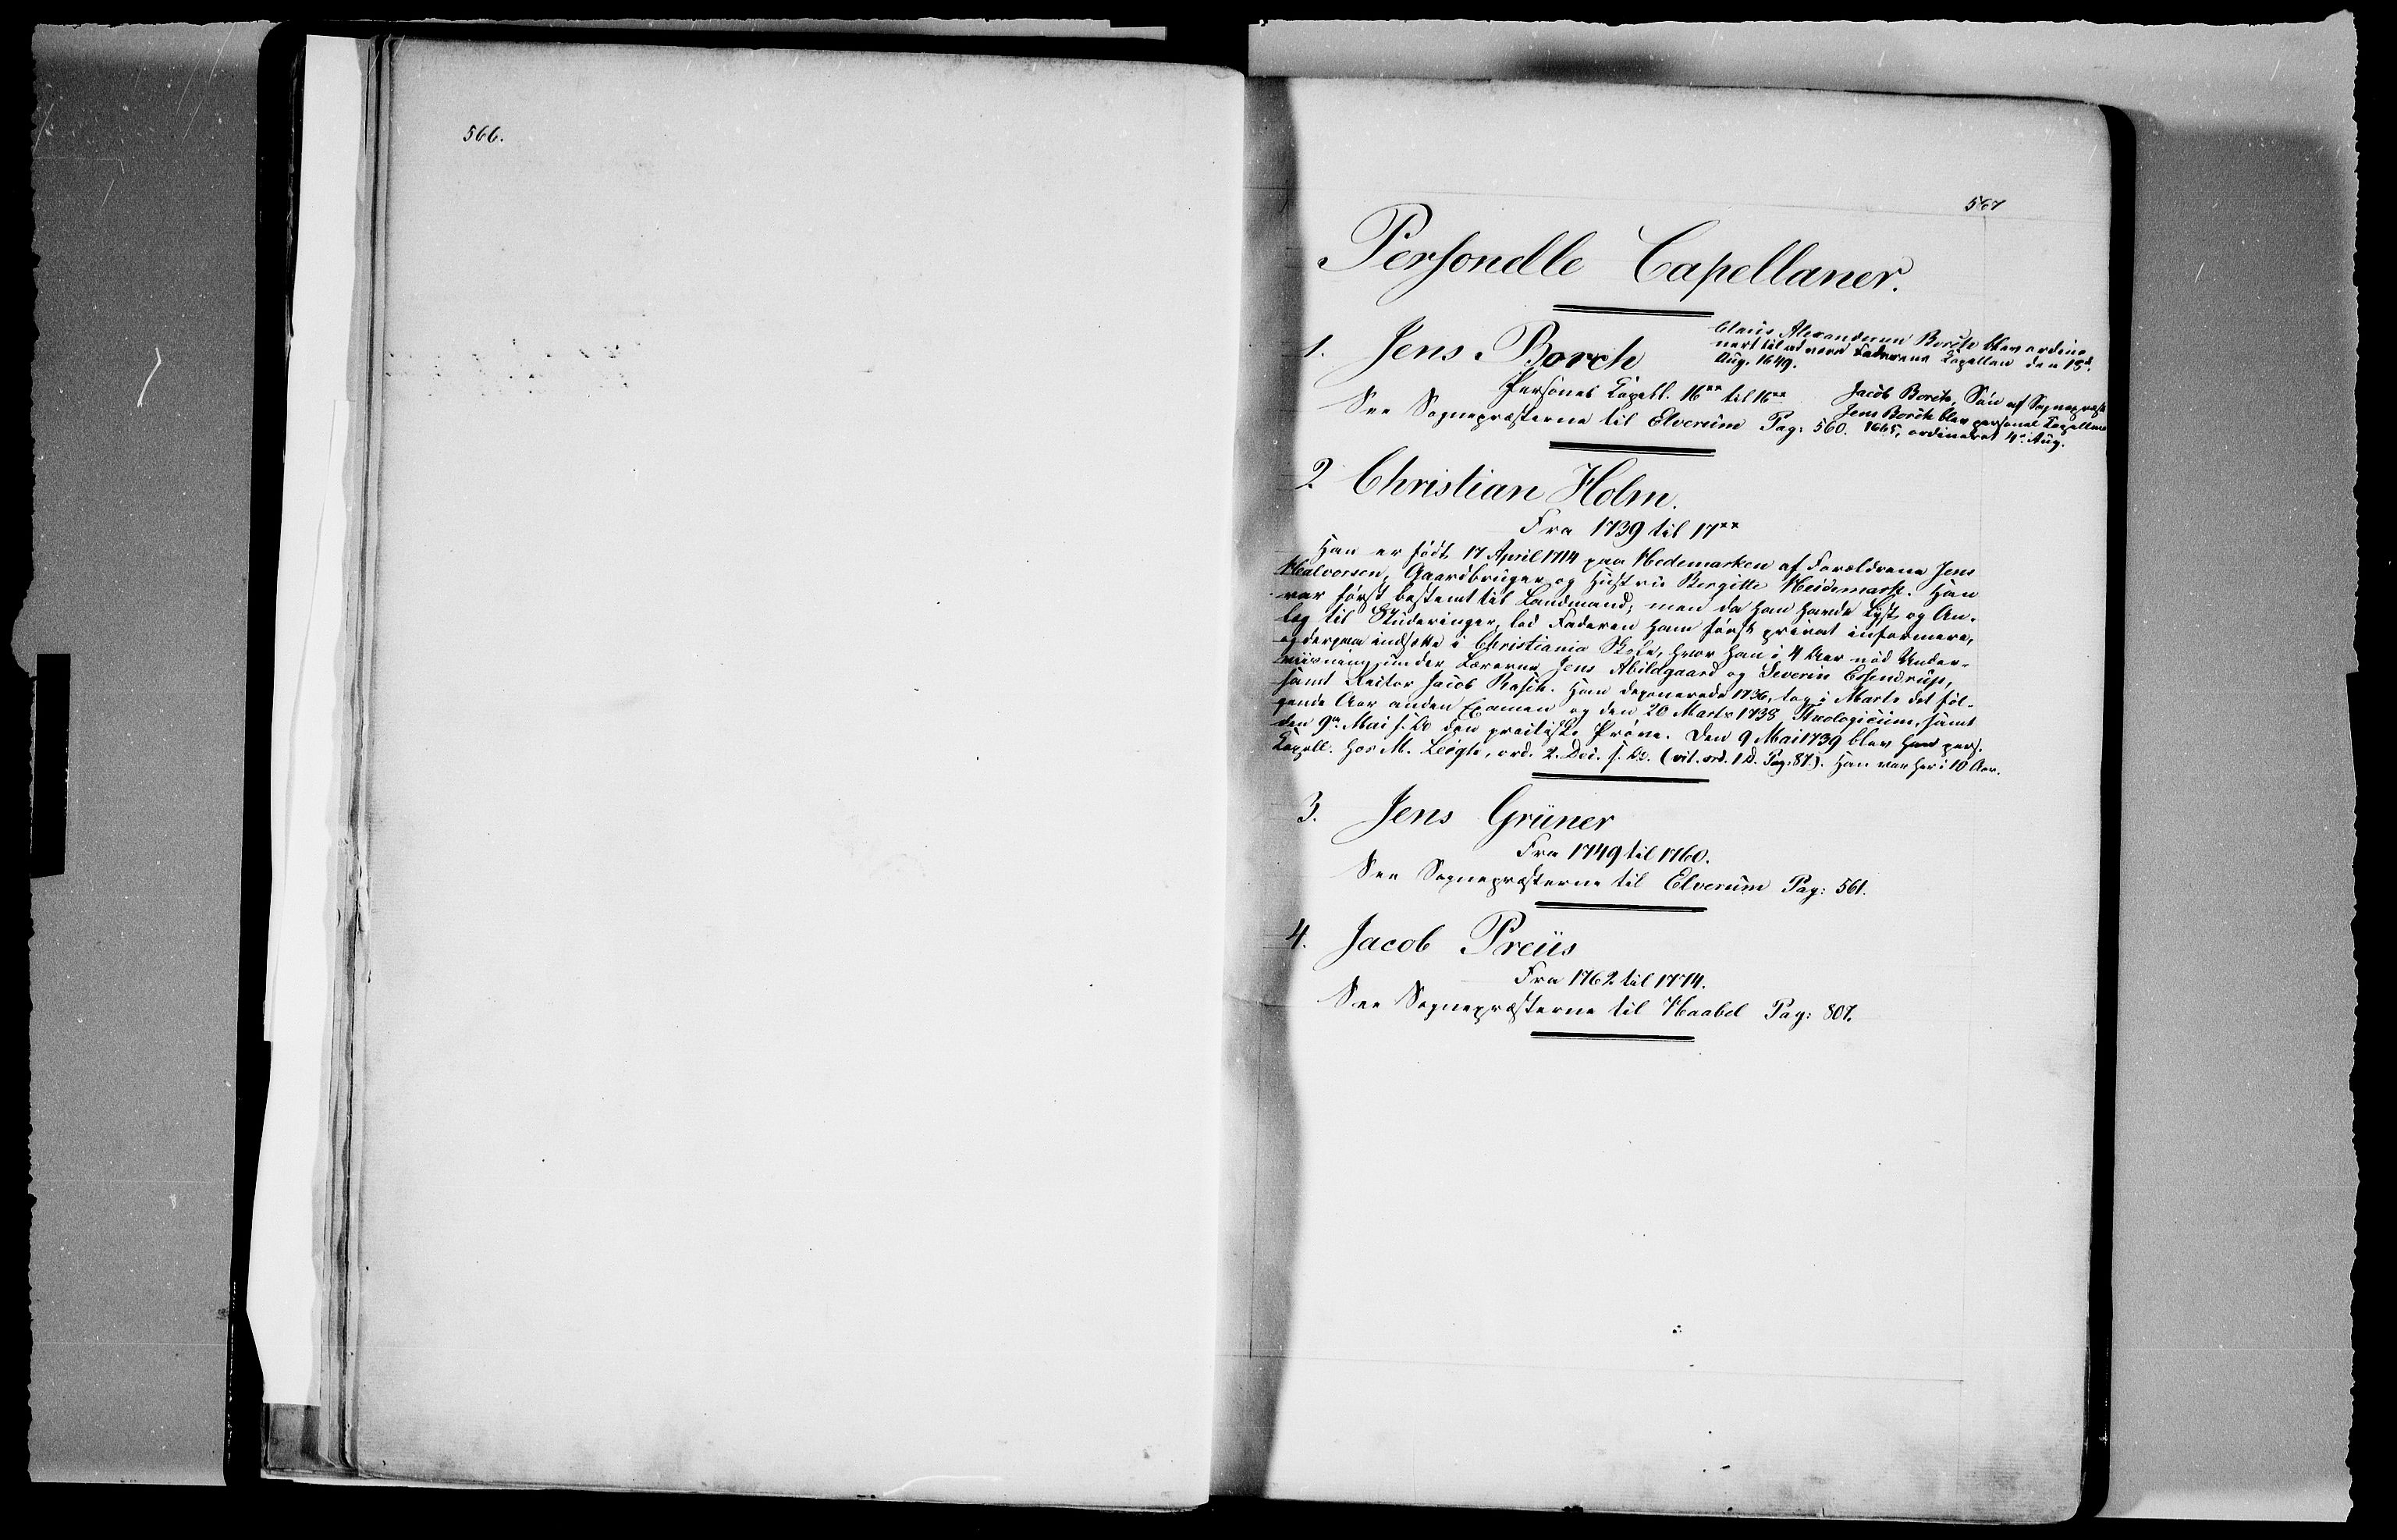 566.
567
Personelle Capellaner.
1. Jens Borch
Claus Alexandersen Borch blev ordine-
nert til at være Faderens Kapellan den 15d.
Aug. 1649.
Personel Kapell. 16** til 16**
See Sognepræsterne til Elverum Pag: 560.
Jacob Borch, Sön af Sognepræst
Jens Borch blev personel Kapellan
1665, ordineret 4de Aug.
2 Christian Holm.
Fra 1739 til 17**
Han er födt 17 April 1714 paa Hedemarken af Forældrene Jens
Halvorsen, Gaardbruger og Hustru Bergitte Heidemark. Han
var först bestemt til Landmand; men da han havde Lyst og An-
læg til Studeringer, lod Faderen ham först privat informere,
og derpaa indsætte i Christiania Skole, hvor han i 4 Aar nöd Under-
viisning under Lærerne Jens Abildgaard og Severin Essendrup,
samt Rector Jacob Rasch. Han deponerede 1736, tog i Marts det föl-
gende Aar anden Examen og den 20 Marts 1738 Theologicum, samt
den 9de Mai s. A. den practiske Pröve. Den 9 Mai 1739 blev han pers.
Kapell. hos M. Leigh, ord. 2. Dec. s. A. (vit. ord. 1 D. Pag: 87.). Han var her i 10 Aar.
3. Jens Grüner
Fra 1749 til 1760.
See Sognepræsterne til Elverum Pag: 561.
4. Jacob Preus
Fra 1762 til 1774.
See Sognepræsterne til Haabel Pag: 807.